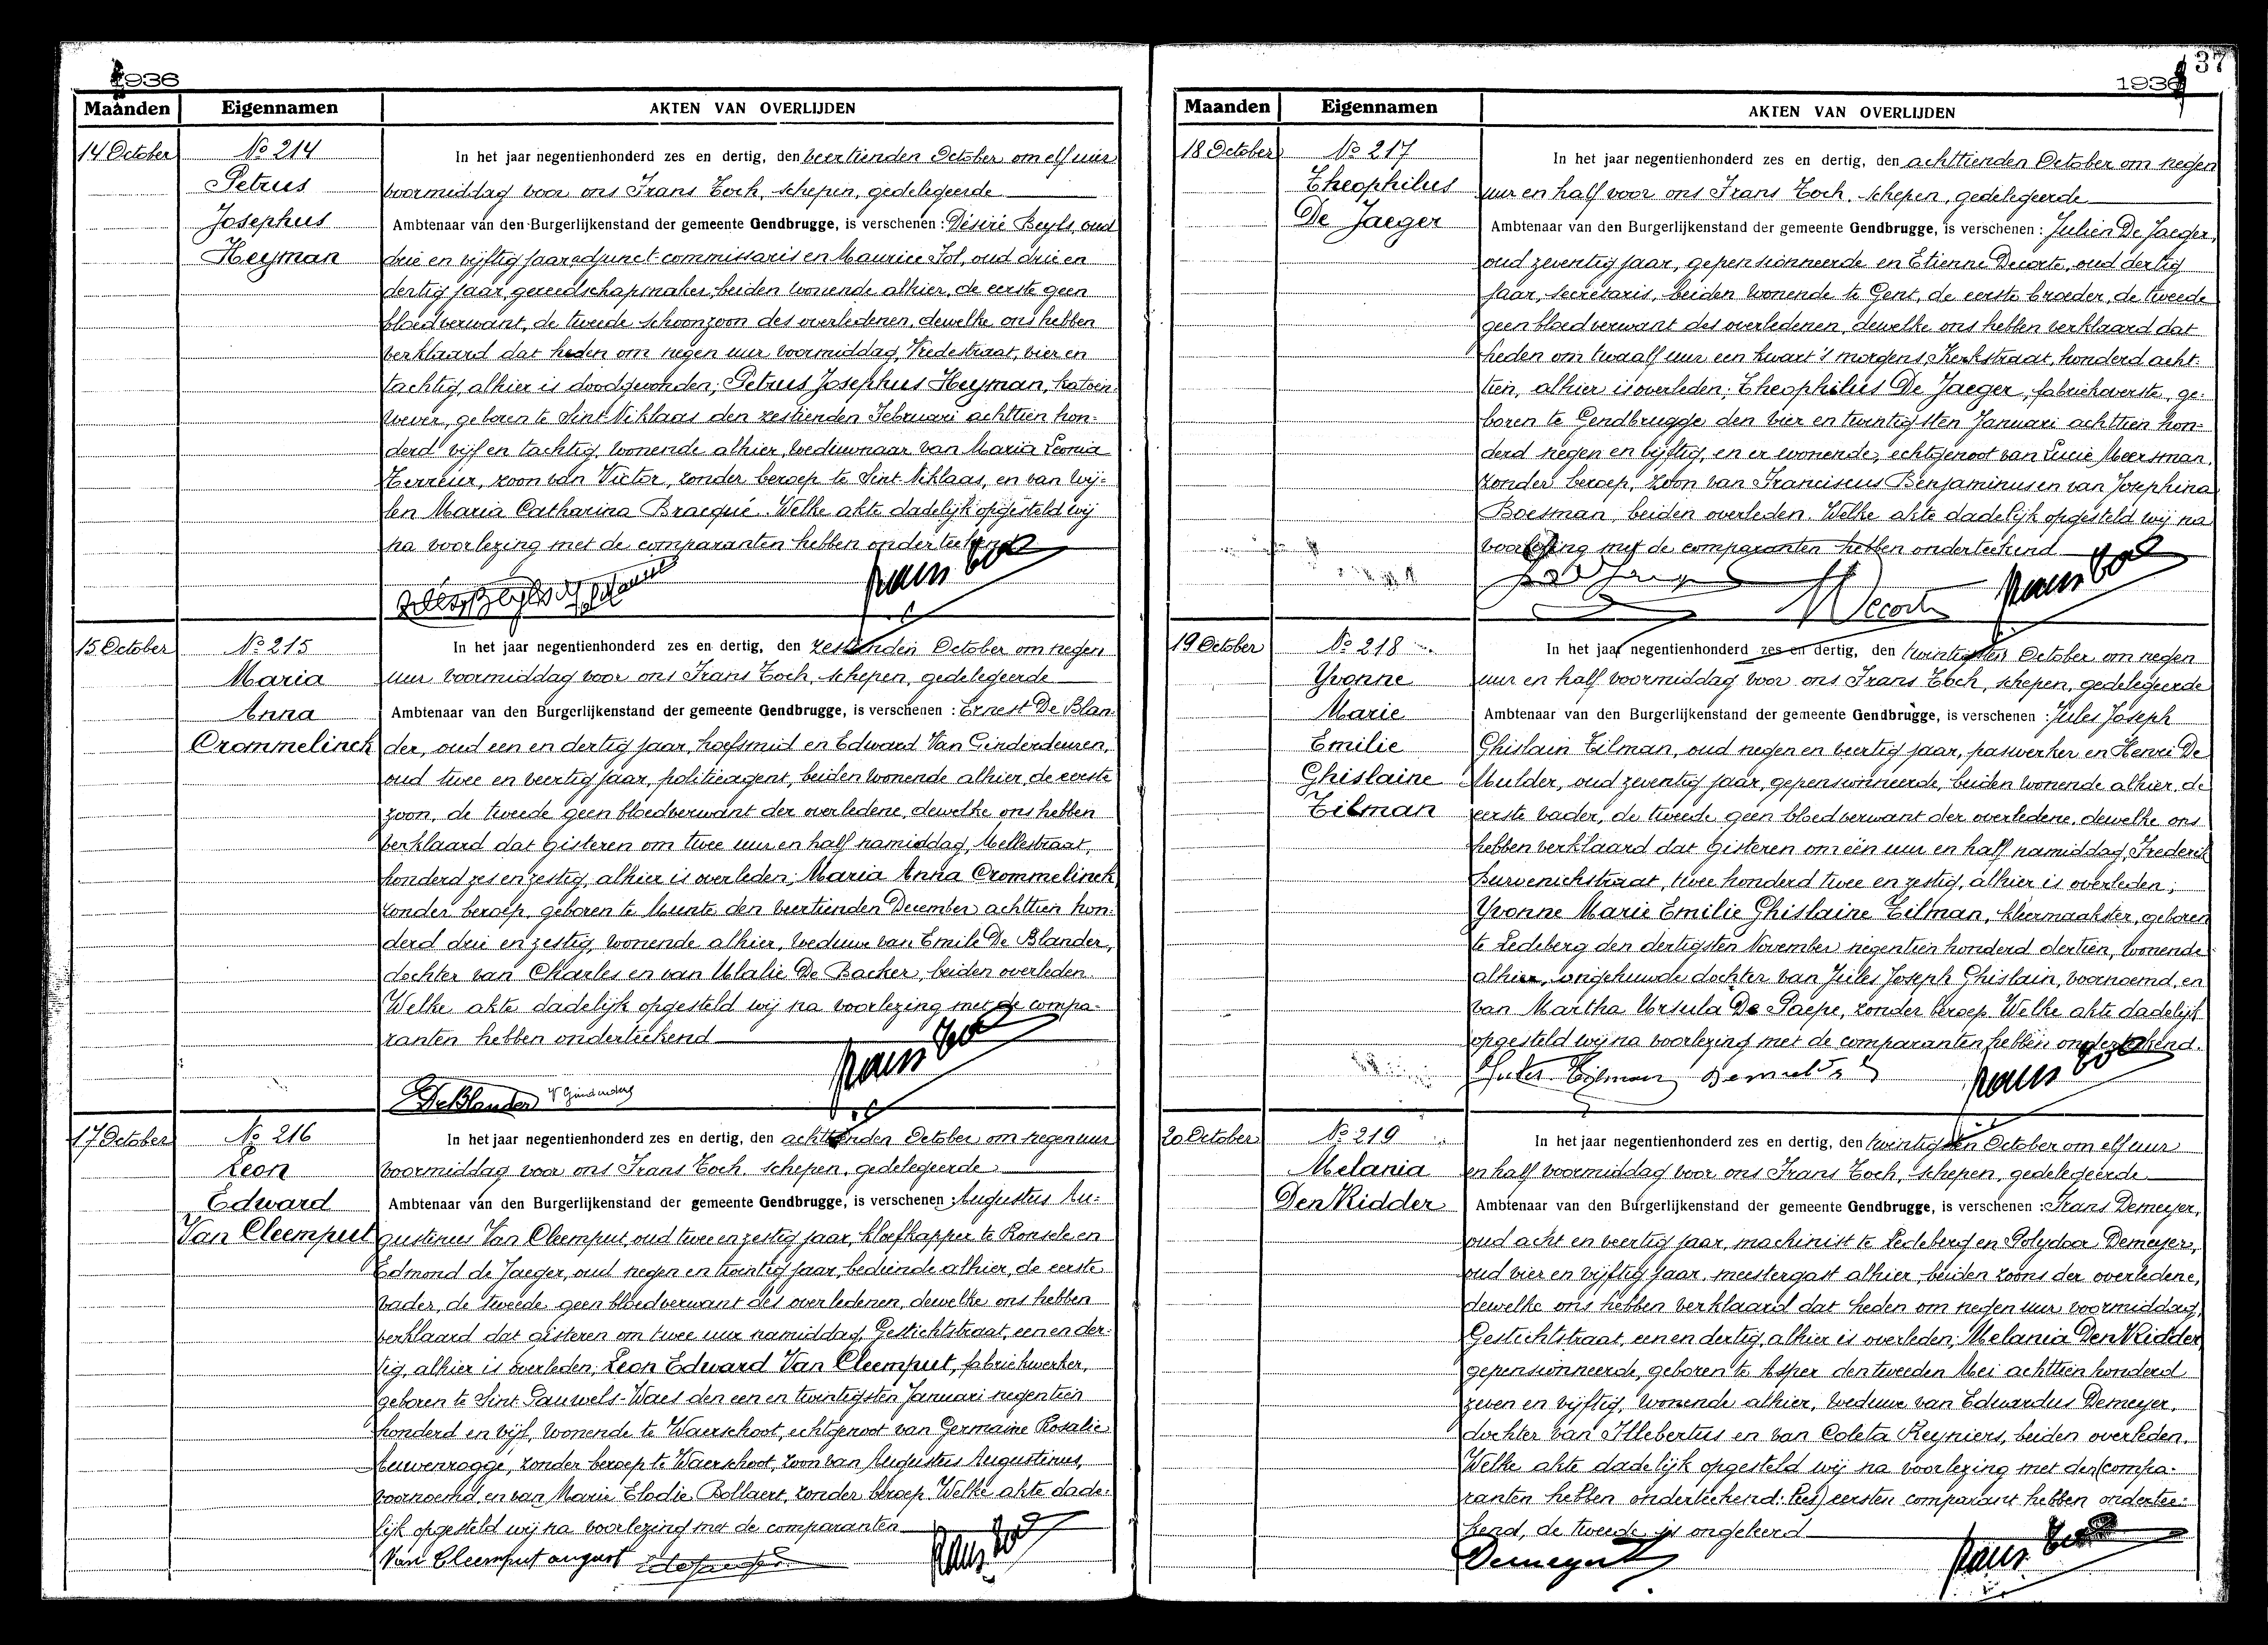 1936
Maanden Eigennamen AKTEN VAN OVERLIJDEN
14 October
No 214
Petrus
Josephus
Heyman
In het jaar negentienhonderd zes en dertig, den veertienden October om elf uur
voormiddag voor ons Frans Toch, schepen, gedelegeerde
Ambtenaar van den Burgerlijkenstand der gemeente Gendbrugge, is verschenen : Désiré Beyls, oud
drie en vijftig jaar, adjunct-commissaris en Maurice Sol, oud drie en
dertig jaar, gereedschapmaker, beiden wonende alhier, de eerste geen
bloedverwant, de tweede schoonzoon des overledenen, dewelke ons hebben
verklaard dat heden om negen uur voormiddag, Vredestraat, vier en
tachtig, alhier is doodgevonden; Petrus Josephus Heyman, katoen-
wever, geboren te Sint Niklaas den zestienden Februari achttien hon-
derd vijf en tachtig, wonende alhier, weduwnaar van Maria Leonia
zoon van Victor, zonder beroep te Sint Niklaas, en van wij-
len Maria Catharina Bracqué. Welke akte dadelijk opgesteld wij
na voorlezing met de comparanten hebben onderteekend
15 October
No 215
Maria
Anna
Crommelinck
In het jaar negentienhonderd zes en dertig, den zestienden October om negen
uur voormiddag voor ons Frans Toch, schepen, gedelegeerde
Ambtenaar van den Burgerlijkenstand der gemeente Gendbrugge, is verschenen : Ernest De Blan-
der, oud een en dertig jaar, hoefsmid en Edward Van Ginderdeuren,
oud twee en veertig jaar, politieagent, beiden wonende alhier, de eerste
zoon, de tweede geen bloedverwant der overledene, dewelke ons hebben
verklaard dat gisteren om twee uur en half namiddag, Mellestraat,
honderd zes en zestig, alhier is overleden; Maria Anna Crommelinck,
zonder beroep, geboren te Munte den veertienden December achttien hon-
derd drie en zestig, wonende alhier, weduwe van Emile De Blander,
dochter van Charles en van Ulalie De Backer, beiden overleden.
Welke akte dadelijk opgesteld wij na voorlezing met de compa-
ranten hebben onderteekend
DeBlander
17 October
No 216
Leon
Edward
Van Cleemput
In het jaar negentienhonderd zes en dertig, den achttienden October om negen uur
voormiddag voor ons Frans Toch, schepen, gedelegeerde
Ambtenaar van den Burgerlijkenstand der gemeente Gendbrugge, is verschenen : Augustus Au-
gustinus Van Cleemput, oud twee en zestig jaar, kloefkapper te Ronsele en
Edmond de Jaeger, oud negen en twintig jaar, bediende alhier, de eerste
vader, de tweede geen bloedverwant des overledenen, dewelke ons hebben
verklaard dat gisteren om twee uur namiddag, Gestichtstraat, een en der-
tig, alhier is overleden; Leon Edward Van Cleemput, fabriekwerker,
geboren te Sint Pauwels-Waes den een en twintigsten Januari negentien
honderd en vijf, wonende te Waerschoot, echtgenoot van Germaine Rosalie
zonder beroep te Waerschoot, zoon van Augustus Augustinus,
voornoemd, en van Marie Elodie Bollaert, zonder beroep. Welke akte dade-
lijk opgesteld wij na voorlezing met de comparanten
Van Cleemput august
37
1936
Maanden Eigennamen AKTEN VAN OVERLIJDEN
18 October
No 217
Theophilus
De Jaeger
In het jaar negentienhonderd zes en dertig, den achttienden October om negen
uur en half voor ons Frans Toch, schepen, gedelegeerde
Ambtenaar van den Burgerlijkenstand der gemeente Gendbrugge, is verschenen : Julien De Jaeger,
oud zeventig jaar, gepensionneerde en Etienne Decorte, oud dertig
jaar, secretaris, beiden wonende te Gent, de eerste broeder, de tweede
geen bloedverwant des overledenen, dewelke ons hebben verklaard dat
heden om twaalf uur een kwart 's morgens, Kerkstraat, honderd acht-
tien, alhier is overleden; Theophilus De Jaeger, fabriekoverste, ge-
boren te Gendbrugge den vier en twintigsten Januari achttien hon-
derd negen en vijftig, en er wonende, echtgenoot van Lucie Meersman,
zonder beroep, zoon van Franciscus Benjaminus en van Josephina
Boesman, beiden overleden. Welke akte dadelijk opgesteld wij na
voorlezing met de comparanten hebben onderteekend
19 October
No 218
Yvonne
Marie
Emilie
Ghislaine
Tilman
In het jaar negentienhonderd zes en dertig, den twintigsten October om negen
uur en half voormiddag voor ons Frans Toch, schepen, gedelegeerde
Ambtenaar van den Burgerlijkenstand der gemeente Gendbrugge, is verschenen : Jules Joseph
Ghislain Tilman, oud negen en veertig jaar, paswerker en Henri De
Mulder, oud zeventig jaar, gepensionneerde, beiden wonende alhier, de
eerste vader, de tweede geen bloedverwant der overledene, dewelke ons
hebben verklaard dat gisteren om één uur en half namiddag, Frederik
Burvenichstraat, twee honderd twee en zestig, alhier is overleden;
Yvonne Marie Emilie Ghislaine Tilman, kleermaakster, geboren
te Ledeberg den dertigsten November negentien honderd dertien, wonende
alhier, ongehuwde dochter van Jules Joseph Ghislain, voornoemd, en
van Martha Ursula De Paepe, zonder beroep. Welke akte dadelijk
opgesteld wij na voorlezing met de comparanten hebben onderteekend.
Jules Tilman Demulder
20 October
No 219
Melania
Den Ridder
In het jaar negentienhonderd zes en dertig, den twintigsten October om elf uur
en half voormiddag voor ons Frans Toch, schepen, gedelegeerde
Ambtenaar van den Burgerlijkenstand der gemeente Gendbrugge, is verschenen : Frans Demeyer,
oud acht en veertig jaar, machinist te Ledeberg en Polydoor Demeyer,
oud vier en vijftig jaar, meestergast alhier, beiden zoons der overledene,
dewelke ons hebben verklaard dat heden om negen uur voormiddag,
Gestichtstraat, een en dertig, alhier is overleden; Melania Den Ridder
gepensionneerde, geboren te Asper den tweeden Mei achttien honderd
zeven en vijftig, wonende alhier, weduwe van Eduardus Demeyer,
dochter van Illebertus en van Coleta Reyniers, beiden overleden.
Welke akte dadelijk opgesteld wij na voorlezing met den (compa-
ranten hebben onderteekend: lees) eersten comparant hebben ondertee-
kend, de tweede is ongeleerd
Demeyer